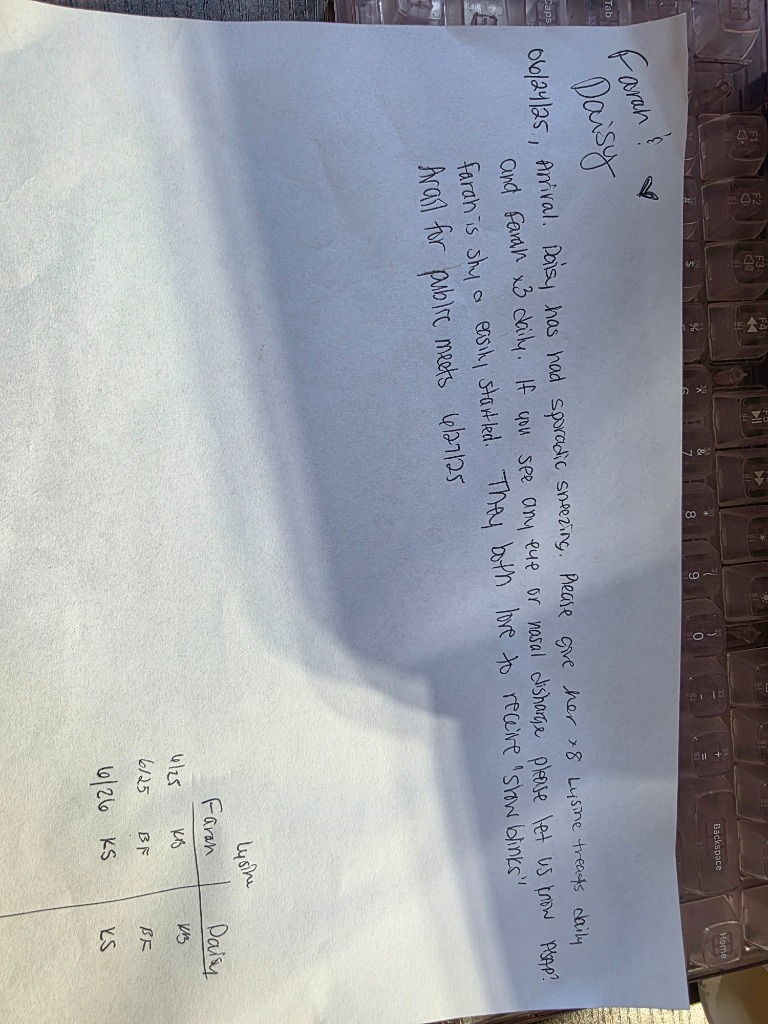 Farah &
Daisy
06/24/25, Arrival. Daisy has had sporadic sneezing. Please give her x8 Lysine treats daily
and Farah x3 daily. If you see any eye or nasal discharge please let us know ASAP?
Farah is shy & easily startled. They both love to receive "slow blinks"
Avail for public meets 6/27/25
Lysine
Farah Daisy
6/25 KB KB
6/25 BF BF
6/26 KS KS
Tab
Caps
F1
F2
F3
F4
#
$
%
^
6
&
7
*
8
(
9
)
0
-
+
=
Backspace
Home